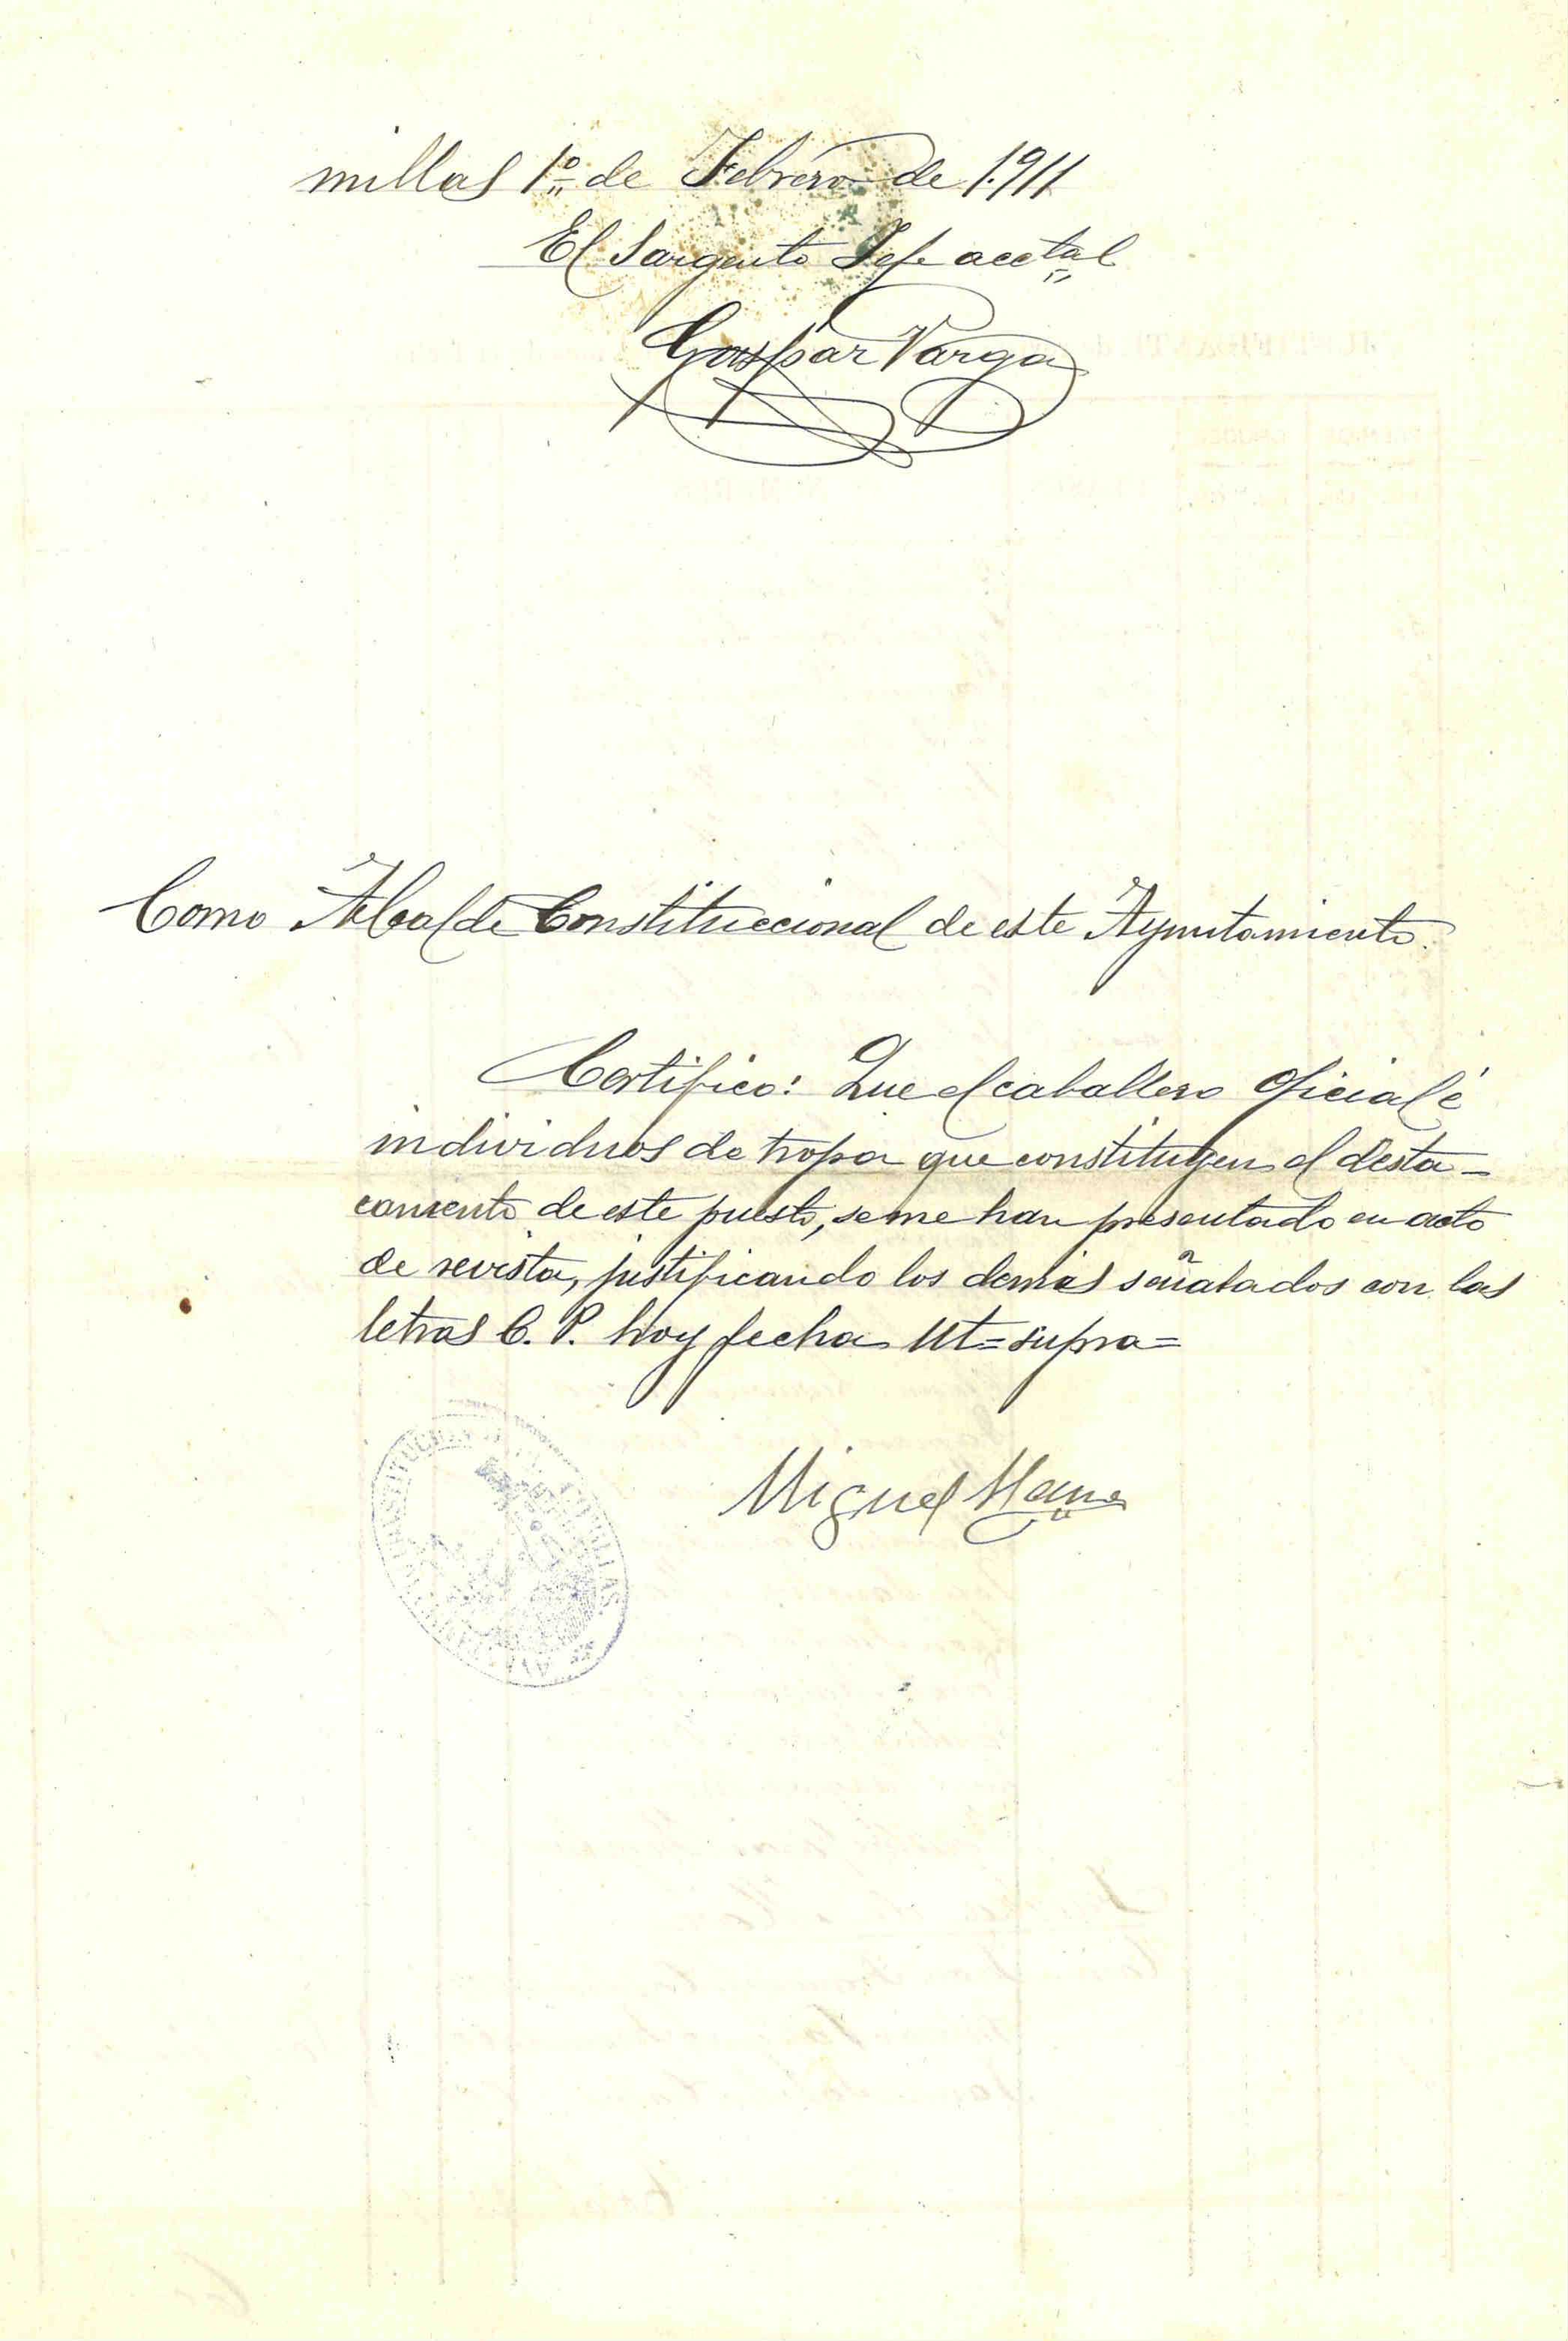 millas 1º de Febrero de 1.911
El Sargento Jefe acctal
Gaspar Varga
Como Alcalde Constituccional de este Ayuntamiento.
Certifico: Que el caballero oficial é
individuos de tropa que constituyen el desta-
camento de este puesto, se me han presentado en acto
de revista, justificando los demás señalados con las
letras C. P. hoy fecha Ut=supra=
Miguel